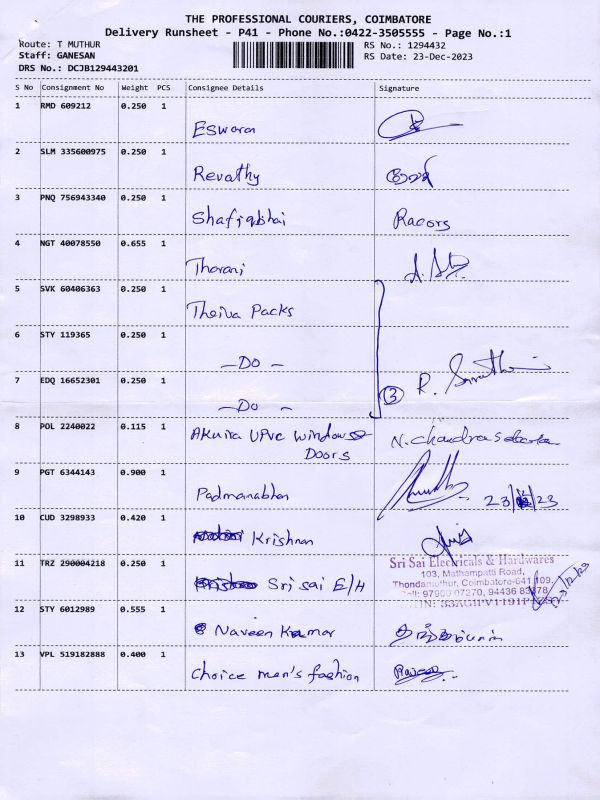 THE PROFESSIONAL COURIERS, COIMBATORE
Delivery Runsheet - P41 - Phone No.:0422-3505555 - Page No.:1
Route: T MUTHUR
RS No.: 1294432
Staff: GANESAN
RS Date: 23-Dec-2023
DRS No.: DCJB129443201
S No Consignment No Weight PCS Consignee Details Signature
1 RMD 609212 0.250 1
Eswaran
2 SLM 335600975 0.250 1
Revathy
3 PNQ 756943340 0.250 1
Shafiqbhai Racors
4 NGT 40078550 0.655 1
Tharani
5 SVK 60406363 0.250 1
Theiva Packs
6 STY 119365 0.250 1
—DO —
7 EDQ 16652301 0.250 1
3 R.
—DO —
8 POL 2240022 0.115 1
Akuira UPVC Windows
Doors
N. Chandrasekaran
9 PGT 6344143 0.900 1
Padmanabhan 23/12/23
10 CUD 3298933 0.420 1
Krishnan
11 TRZ 290004218 0.250 1
Sri sai E/H
Sri Sai Electricals & Hardwares
103, Mathampatti Road,
Thondamuthur, Coimbatore-641 109.
Cell: 97900 07270, 94436 83778
23/12/23
12 STY 6012989 0.555 1
Naveen Kumar
13 VPL 519182888 0.400 1
Choice men's fashion